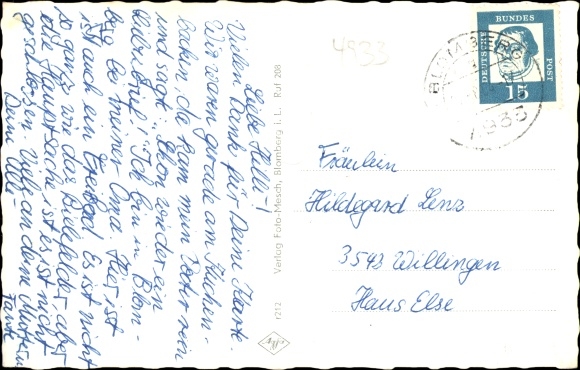 Liebe Hilli-!
Vielen Dank für Deine Karte.
Wir waren gerade am Kuchen-
backen da kam mein Vater rein
und sagt: schon wieder ein
Ich bin in Blom-
berg bei meiner Oma. Hier ist
jetzt auch ein Freibad. Es ist nicht
so ganz wie das Bielefelder aber
die Hauptsache ist es ist nicht
geschlossen. Viele an deine Mutter
Deine
Tante
Verlag Foto-Mesch, Blomberg i. L. Ruf 208
r212
4933
DEUTSCHE BUNDES POST
15
BLOMBERG
4933
Fräulein
Hildegard Lenz
3543 Willingen
Haus Else